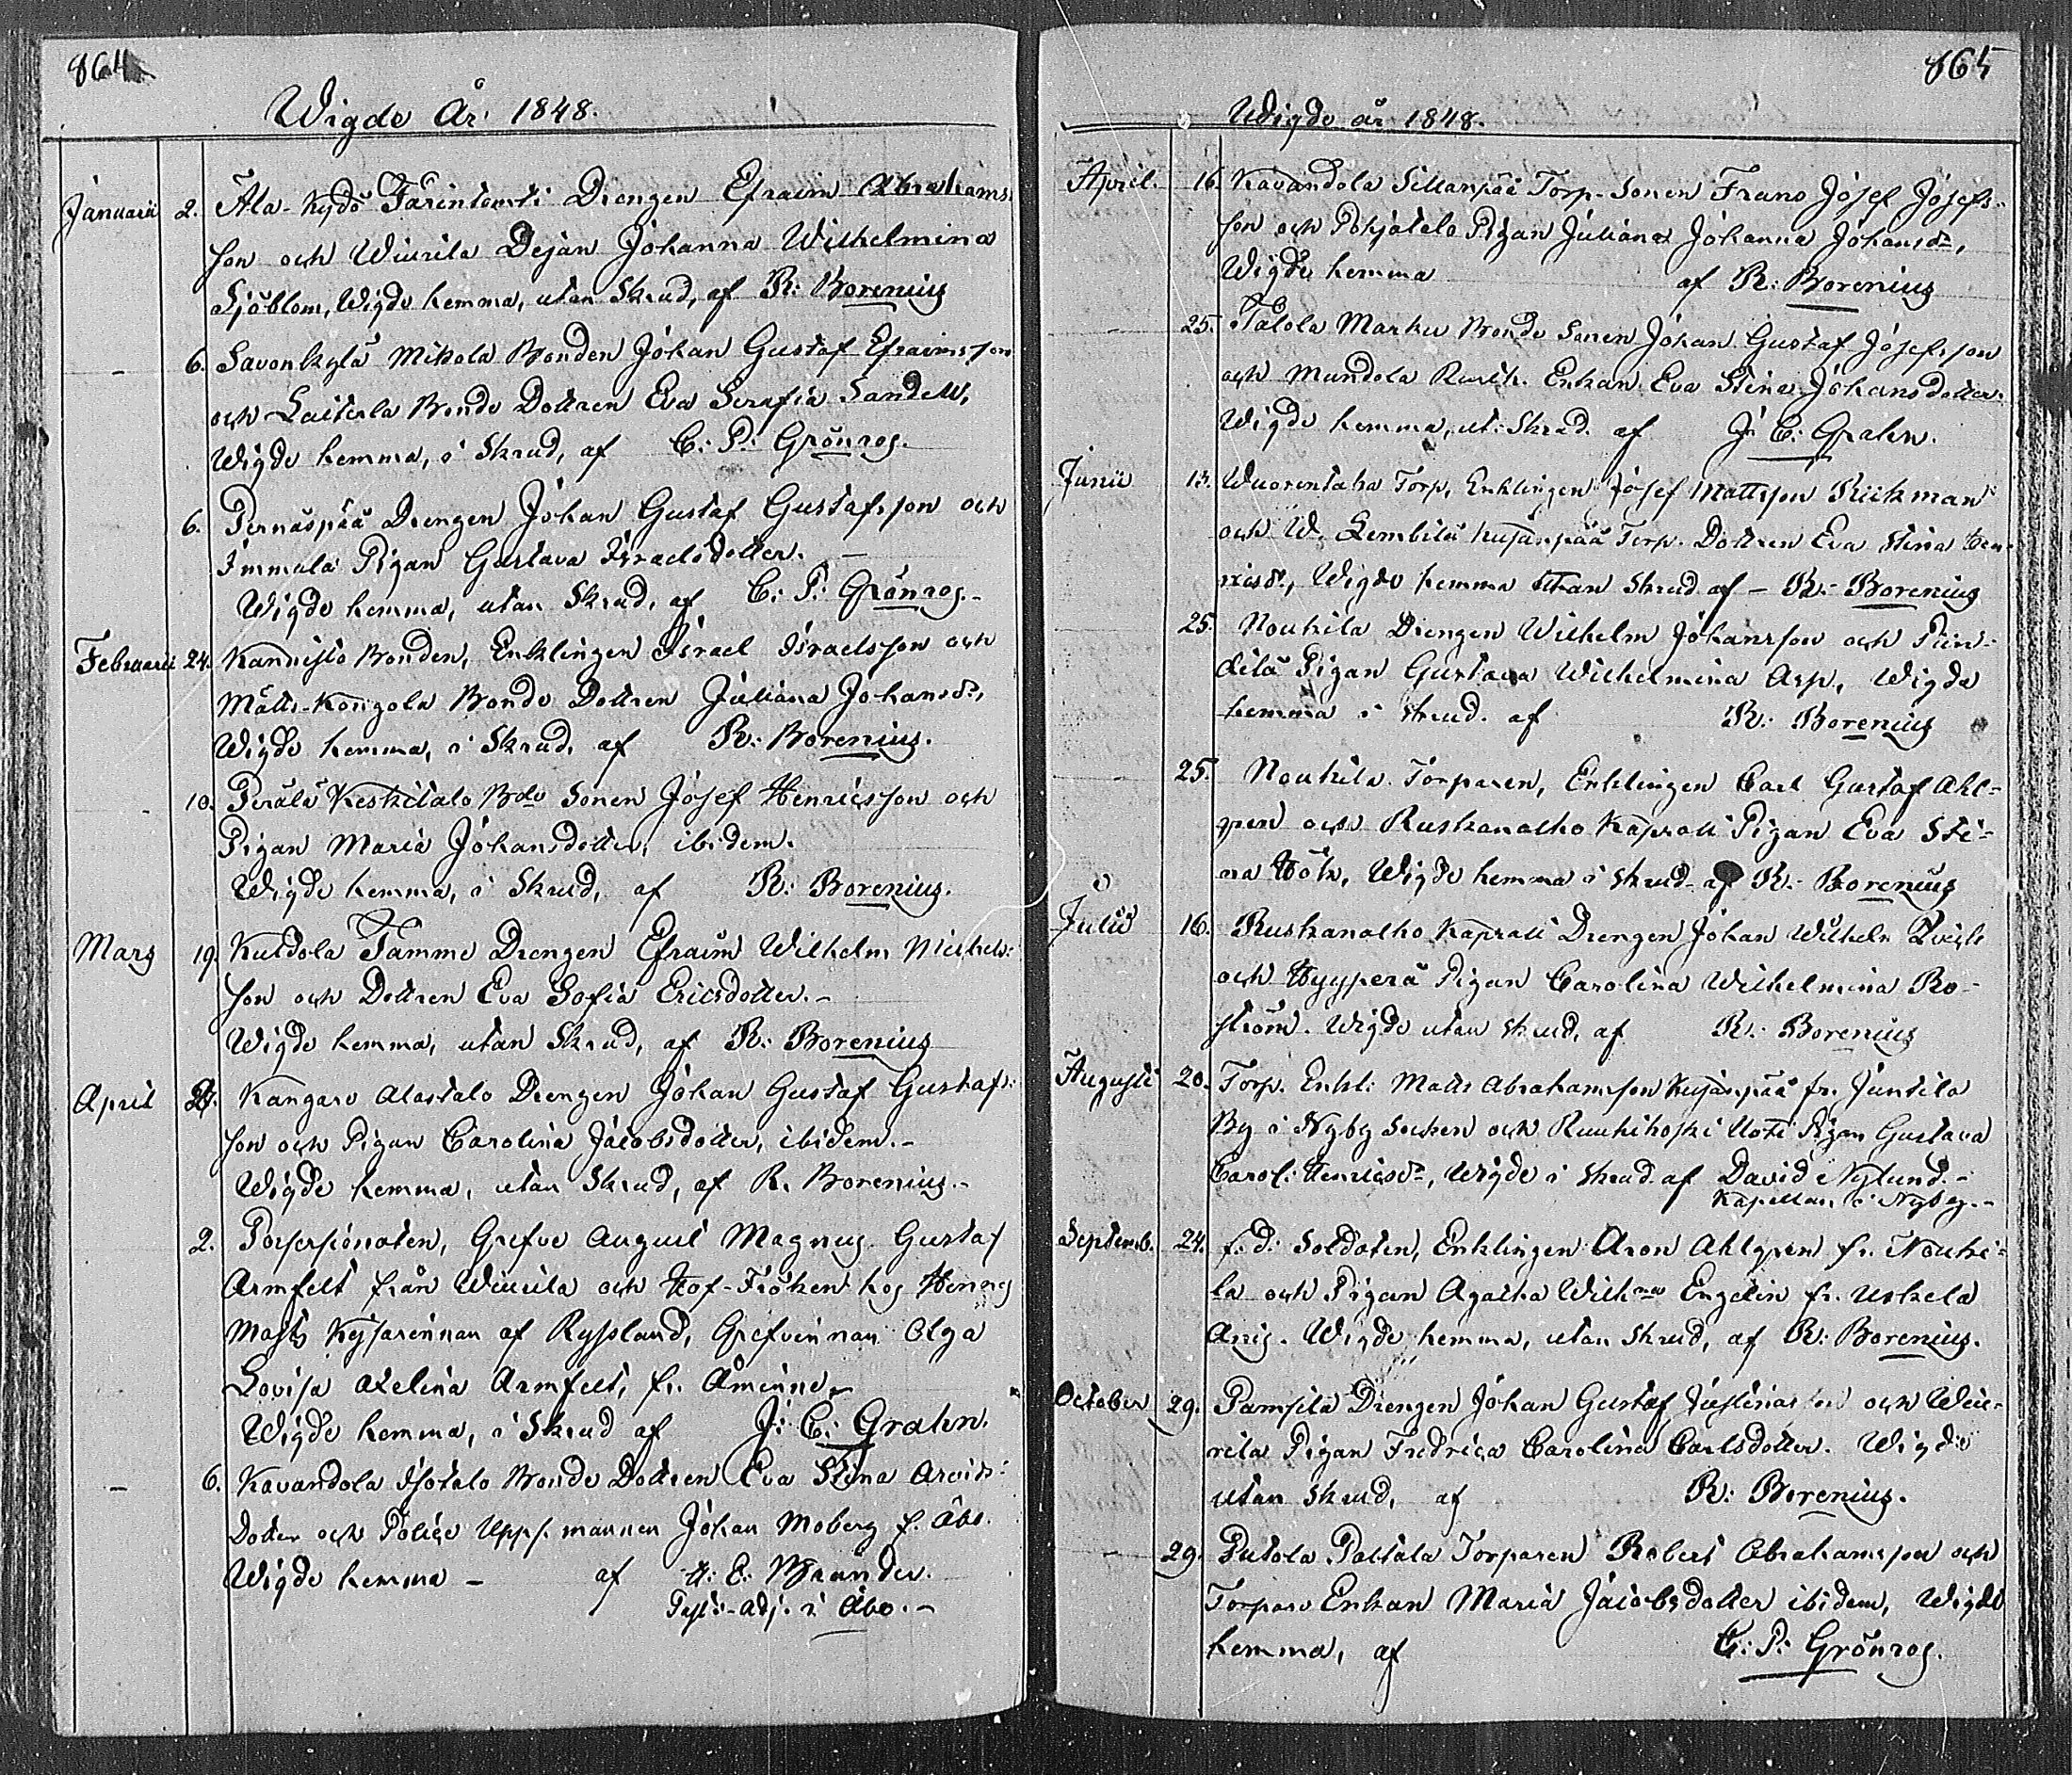 864
Wigde År 1848.
Januarii 2. Ala-Kydö Tärintenti Drengen Efraim Abrahams
son och Wiurila Dejan Johanna Wilhelmina
Sjöblom, Wigde hemma, utan Skrud, af R: Borenius
— 6. Savonkylä Mikola Bonden Johan Gustaf Efraimsson
och Laiterla Bonde Dottren Eva Serafia Sandell,
Wigde hemma, i Skrud, af C: P: Grönros.
6. Pernäspää Drengen Johan Gustaf Gustafsson och
Immala Pigan Gustava Israelsdotter. —
Wigde hemma, utan Skrud, af C: P: Grönros.-
Februarii 24. Kannisto Bonden, Enklingen Israel Israelsson och
Mätti-Kongola Bonde Dottren Juliana Johansdr,
Wigde hemma, i Skrud, af R: Borenius.
- 10. Perälä Keskitalo Bde Sonen Josef Henricsson och
Pigan Maria Johansdotter, ibidem.
Wigde hemma, i Skrud, af R: Borenius.
Mars 19. Kuldola Tamme Drengen Efraim Wilhelm Michels:
son och Dottren Eva Sofia Ericsdotter.-
Wigde hemma, utan Skrud, af R: Borenius
April Kangare Alastalo Drengen Johan Gustaf Gustafs:
son och Pigan Carolina Jacobsdotter, ibidem.-
Wigde hemma, utan Skrud, af R. Borenius.-
2. Possessionaten, Grefve August Magnus Gustaf
Armfelt från Wiurila och Hof-Fröken hos Hennes
Majts Kejsarinnan af Ryssland, Grefvinnan Olga
Lovisa Axelina Armfelt, fr. Åminne.-
Wigde hemma, i Skrud af J: C: Grahn.
— 6. Kavandola Isotalo Bonde Dottren Eva Stina Arvids:
Dotter och Police Upps. mannen Johan Moberg f. Åbo.
Wigde hemma — af H: E: Brander.
Past:-Adj. i Åbo.-
865
Wigde år 1848.
April. 16. Kavandola Sillanpää Torp-Sonen Frans Josef Josefs-
son och Pohjatalo Pigan Juliana Johanna Johansdr,
Wigde hemma af R: Borenius
— 25. Tålola Marku Bonde Sonen Johan Gustaf Josefsson
och Mundola Rusth. Enkan Eva Stina Johansdotter.
Wigde hemma, ut: Skrud. af J: C: Grahn.
Junii 13. Wuorentaka Torp, Enklingen Josef Mattsson Riikman
och W. Lembilä Kujanpää Torp. Dottren Eva Stina Hen-
ricsdr, Wigde hemma utan Skrud af — R:- Borenius
25. Noukila Drengen Wilhelm Johansson och
Pigan Gustava Wilhelmina Asp, Wigda
hemma i Skrud. af R: Borenius
— 25. Noukila Torparen, Enklingen Carl Gustaf Ahl-
gren och Ruskanalho Kaprali Pigan Eva Sti-
na Hök, Wigde hemma i Skrud af R:- Borenius
Julii 16. Ruskanalho Kaprali Drengen Johan Wilhelm Qvist
och Hyyperä Pigan Carolina Wilhelmina Ro-
ström. Wigde utan skrud, af R:- Borenius
Augusti 20. Torp. Enkl: Matts Abrahamsson Kujanpää fr. Juntila
By i Nyby Socken och Ruukikoski Uoti Pigan Gustava
Carol: Henricsdr, Wigde i Skrud. af David Nylund.-
Kapellan i Nyby.-
Septemb. 24. f:d: Soldaten, Enklingen Aron Ahlgren fr. Nouki-
la och Pigan Agatha Wilhna Engelin fr. Uskela
Wigde hemma, utan Skrud, af R: Borenius.
October 29. Pamsila Drengen Johan Gustaf Justinasson och Wiu-
rila Pigan Fredrica Carolina Carlsdotter. Wigde
utan Skrud, af R: Borenius.
— 29. Putola Paltala Torparen Robert Abrahamsson och
Torpare Enkan Maria Jacobsdotter ibidem, Wigde
hemma, af C: P: Grönros.